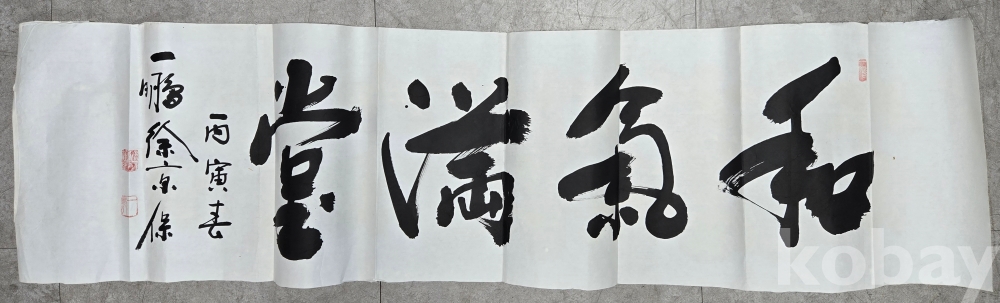 和氣滿堂
丙寅春
一鵬徐京保
kobay